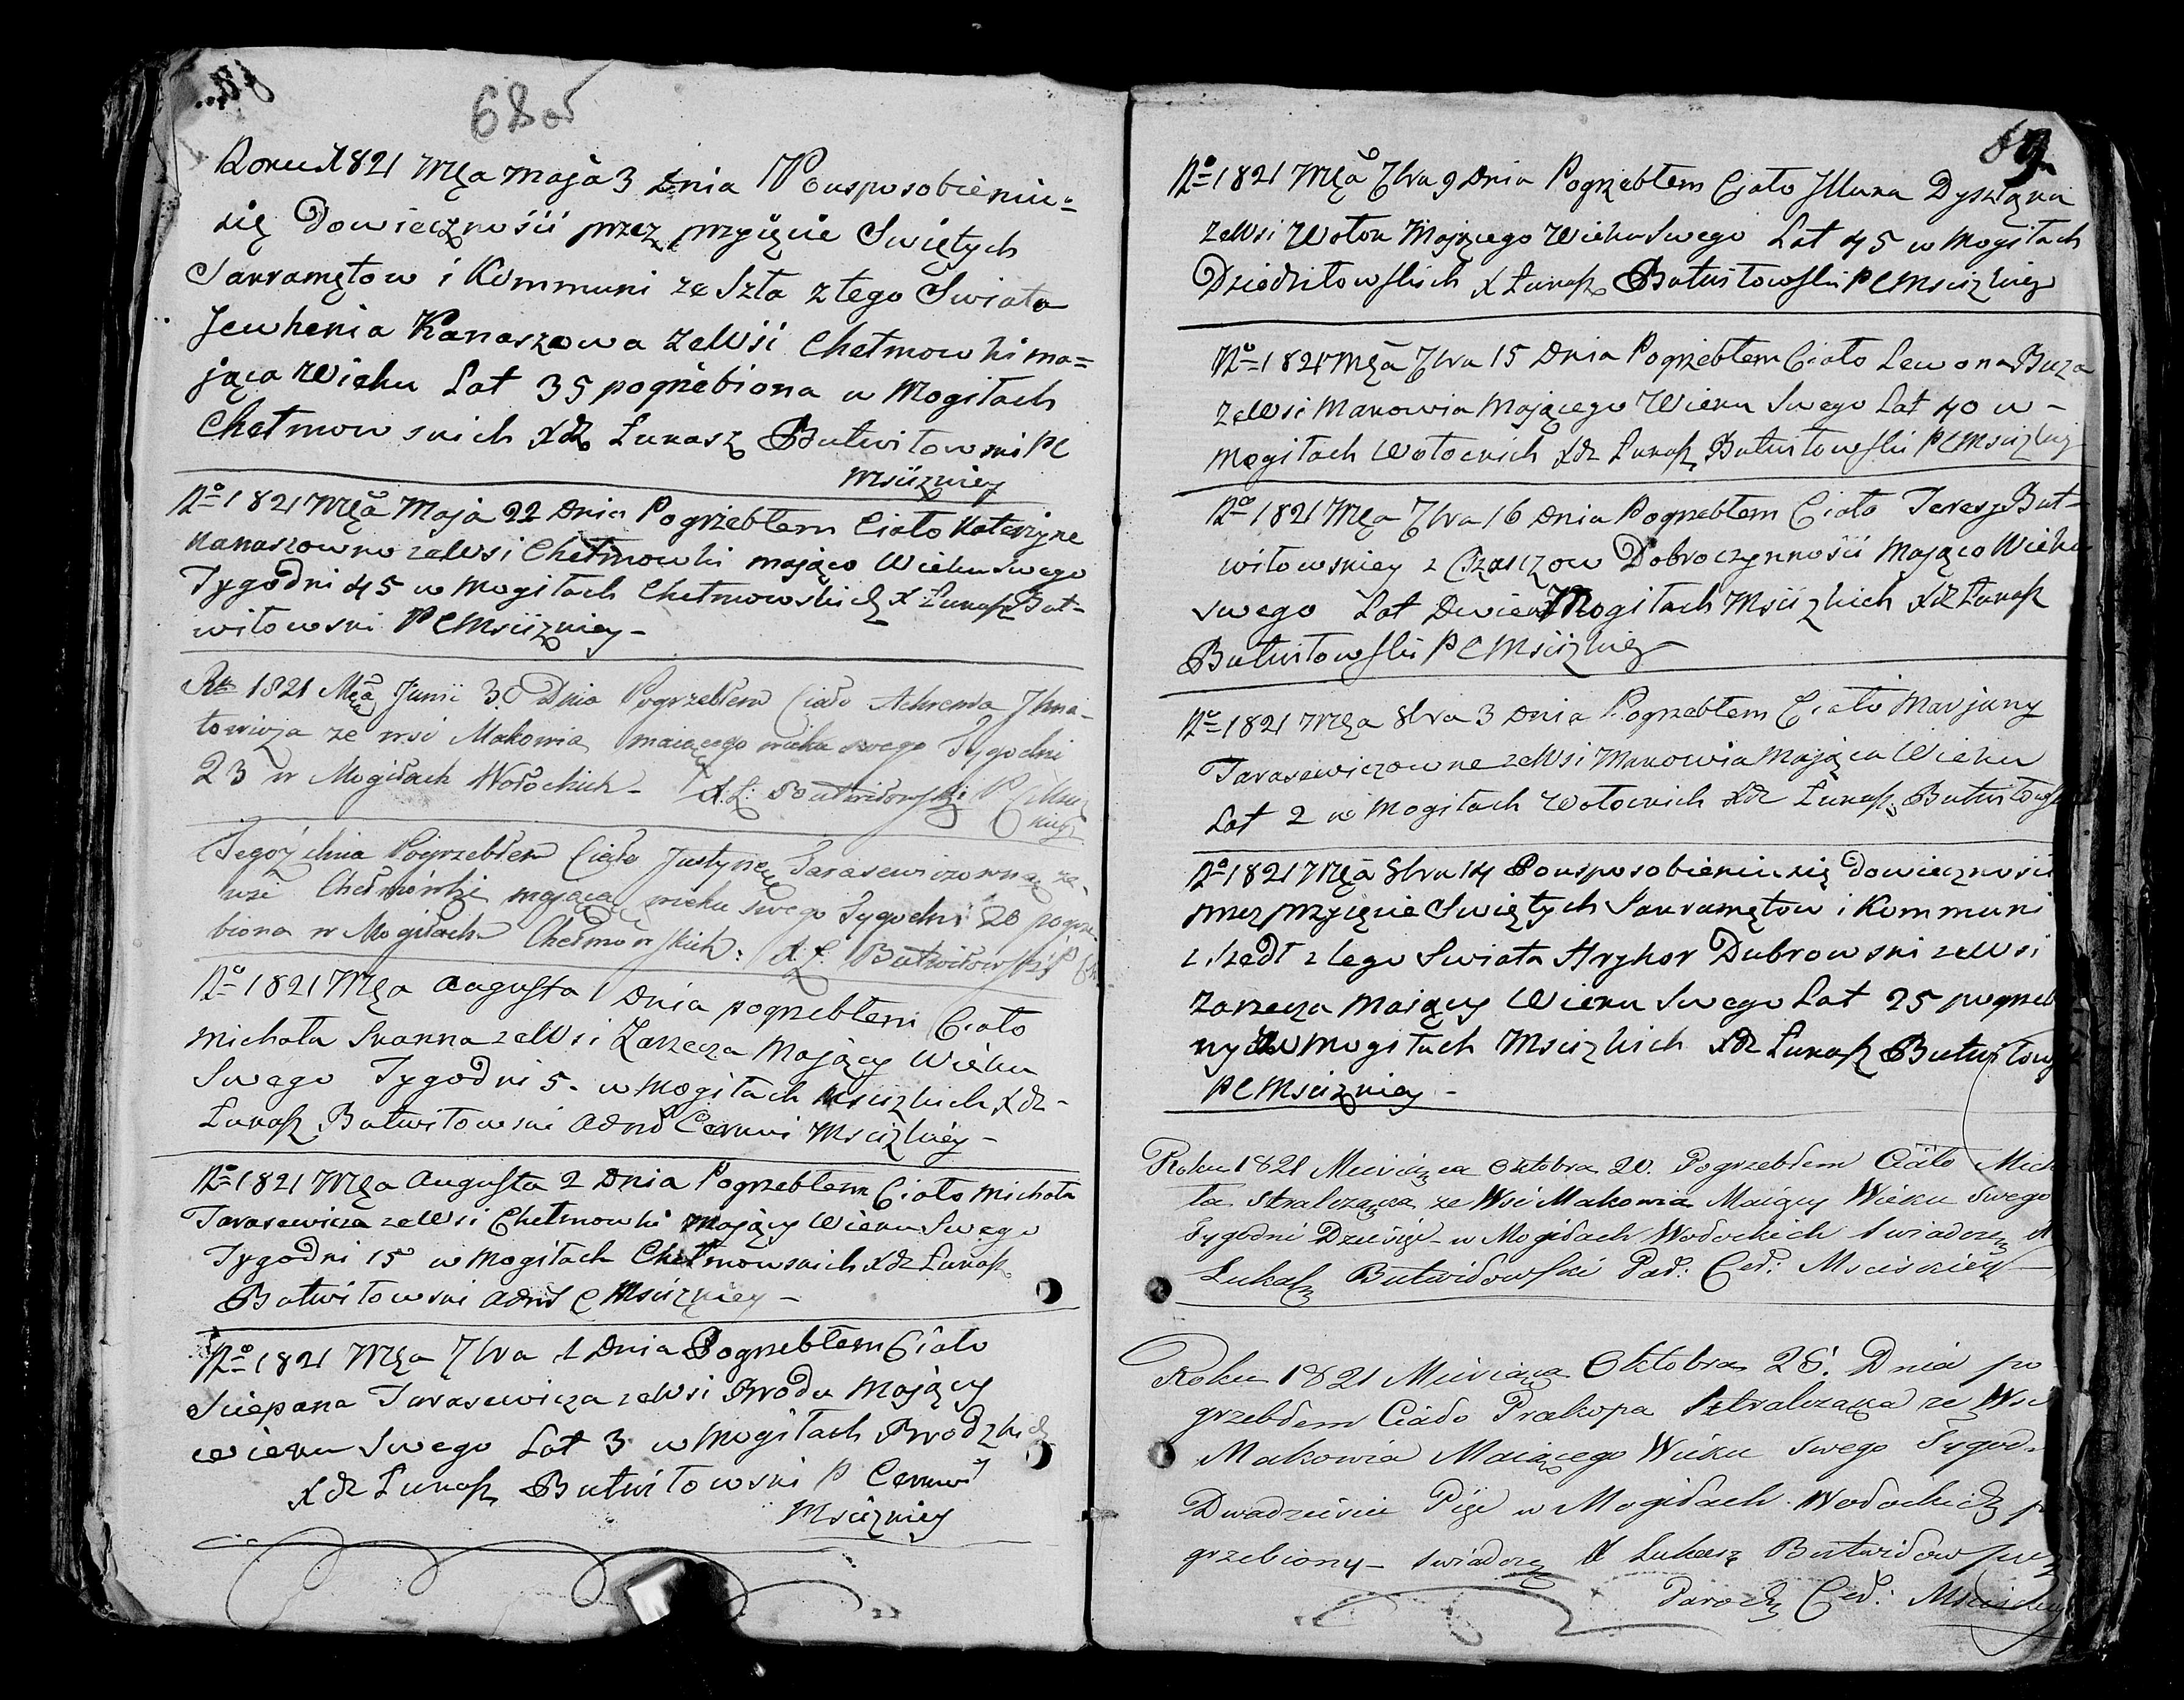 68 об
Roku 1821 Mca Maja 3 Dnia Po usposobieniu=
się Dowiecznośći przez przyięcie Swiętych
Sakramętow i Kommuni zeszła ztego Swiata
Jewhenia Kanaszowa zeWsi Chełmowki ma=
jąca Wieku Lat 35 pogrzebiona w Mogiłach
Chełmowskich Xdz Łukasz Butwiłowski PC
Msciżkiey
Ro 1821 Mca Maja 22 Dnia Pogrzebłem Ciało Katerzyne
Kanaszowno zeWsi Chełmowki mająco Wieku Swego
Tygodni 45 w Mogiłach Chełmowskich X Łukasz But=
wiłowski PCMsciżkiey -
Rku 1821 Mca Junii 30 Dnia Pogrzebłem Ciało Achrema Ihna-
towicza ze wsi Makowia maiącego wieku swego Tygodni
23 w Mogiłach Wołockich - X Ł: Butwiłowski P C Msci
kiey
Tegoż dnia Pogrzebłem Ciało Justynę Tarasewiczowną ze
wsi Chełmówki mającą wieku swego Tygodni 20 pogrze
biona w Mogiłach Chełmowskich: X Ł: Butwiłowski P
Ro 1821 Mca Augusta 1 Dnia pogrzebłem Ciało
Michała Skakna zeWsi Zarzecza Mający Wieku
Swego Tygodni 5. w Mogiłach Msciżkich Xdz-
Łukasz Butwiłowski Admr Cerkwi Msciżkiéy-
Ro 1821 Mca Augusta 2 Dnia Pogrzebłem Ciało Michała
Tarasewicza zeWsi Chełmowki Mający Wieku Swego
Tygodni 15 w Mogiłach Chełmowskich Xdz Łukasz
Butwiłowski Admr C Msciżkiey -
Ro 1821 Mca 7bra 1 Dnia Pogrzebłem Ciało
Sciepana Tarasewicza zeWsi Brodu Mający
Wieku Swego Lat 3 w Mogiłach Brodzkich
Xdz Łukasz Butwiłowski P Cerkwi
Msciżkiey
69
Ro 1821 Mca 7bra 9 Dnia Pogrzebłem Ciało Jlluka
zeWsi Wołok Mającego Wieku Swego Lat 45 w Mogiłach
Dziedziłowskich X Łukasz Butwiłowski PCMsciżkiey
Ro 1821 Mca 7bra 15 Dnia Pogrzebłem Ciało Lewona Buza
zeWsi Makowia Mającego Wieku Swego Lat 40 w -
Mogiłach Wołockich Xdz Łukasz Butwiłowski PCMsciżkiey
Ro 1821 Mca 7bra 16 Dnia Pogrzebłem Ciało Teresy But-
wiłowskiey z Dobroczynnośći Mająco Wieku
swego Lat Dwie w Mogiłach Msciżkich Xdz Łukasz
Butwiłowski PCMsciżkiey
Ro 1821 Mca 8bra 3 Dnia Pogrzebłem Ciało Marjany
Tarasewiczowne zeWsi Makowia Mająca Wieku
Lat 2 w Mogiłach Wołockich Xdz Łukasz Butwiłows
Ro 1821 Mca 8bra 14 Po usposobieniu się Dowiecznośći
przez przyięcie Swiętych Sakramętow i Kommuni
zszedł z tego Swiata Hryhor Dubrowski zeWsi
Zarzecza Maiący Wieku Swego Lat 25 pogrzeb
ny w Mogiłach Msciżkich Xdz Łukasz Butwiłows
PCMsciżkiey -
Roku 1821 Miesiąca Oktobra 20. Pogrzebłem Ciało Mich
ła Stralczaka ze Wsi Makowia Maiący Wieku Swego
Tygodni Dziesięć w Mogiłach Wołockich Swiadczę X
Łukasz Butwiłowski Par: Cer: Msciskiey
Roku 1821 Miesiąca Oktobra 28. Dnia po
grzebłem Ciało Prakopa Stralczaka ze Wsi
Makowia Maiącego Wieku Swego Tygod-
Dwadziescie Pięć w Mogiłach Wołockich p
grzebiony - Swiadczę X Łukasz Butwiłowski
Paroch Cer: Msciskiey